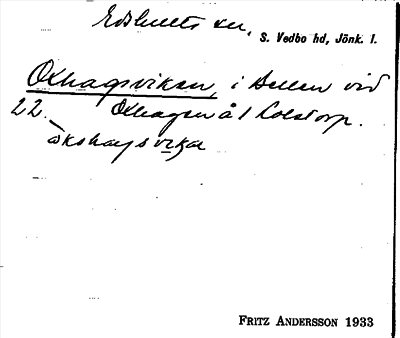 Edshults sn,
S. Vedbo hd, Jönk. l.
Oxhagsviken, i Bellen vid
22. Oxhagen å 1 Kolstorp.
åkshagsvika
FRITZ ANDERSSON 1933